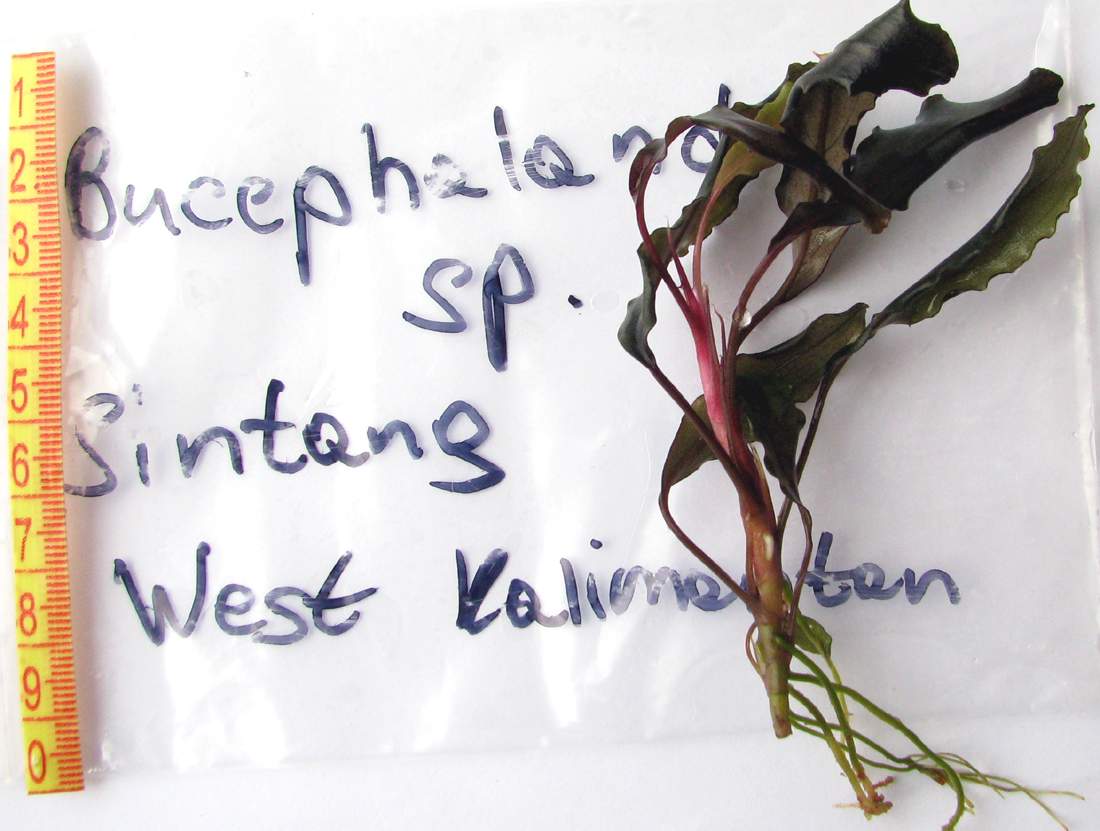 1
2
3
4
5
6
7
8
9
0
Bucephaland
sp.
Sintang
West Kalimantan